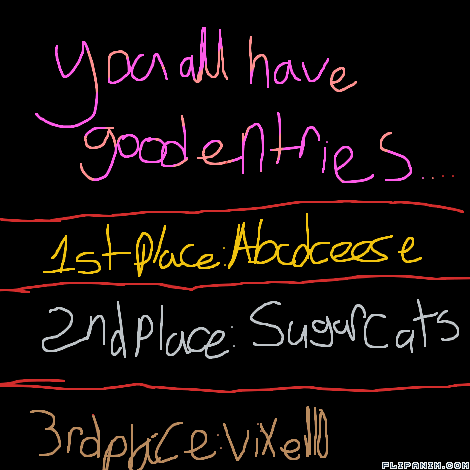 you all have
good entries.....
1st place: Abcdceese
2nd place: SugarCats
3rd place: vixello
FLIPANIM.COM